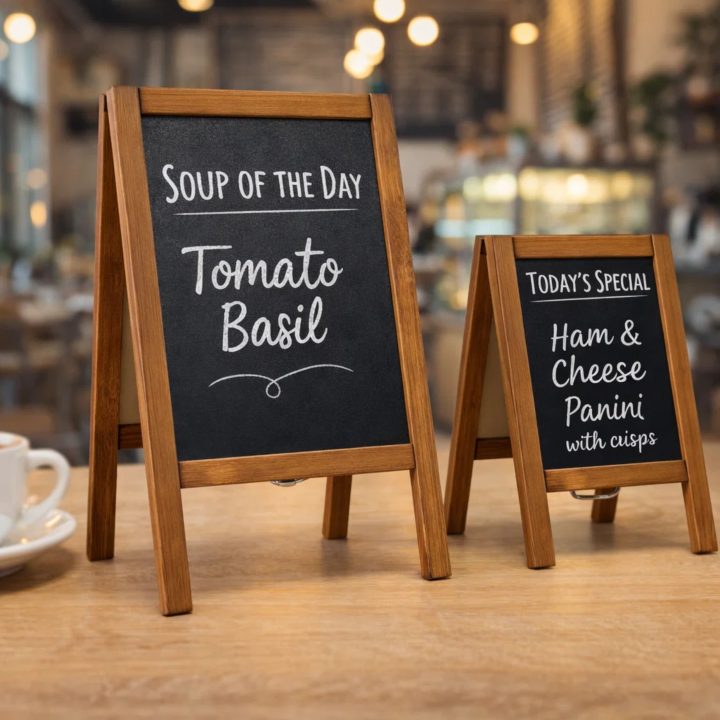 SOUP OF THE DAY
Tomato
Basil
TODAY'S SPECIAL
Ham &
Cheese
Panini
with crisps